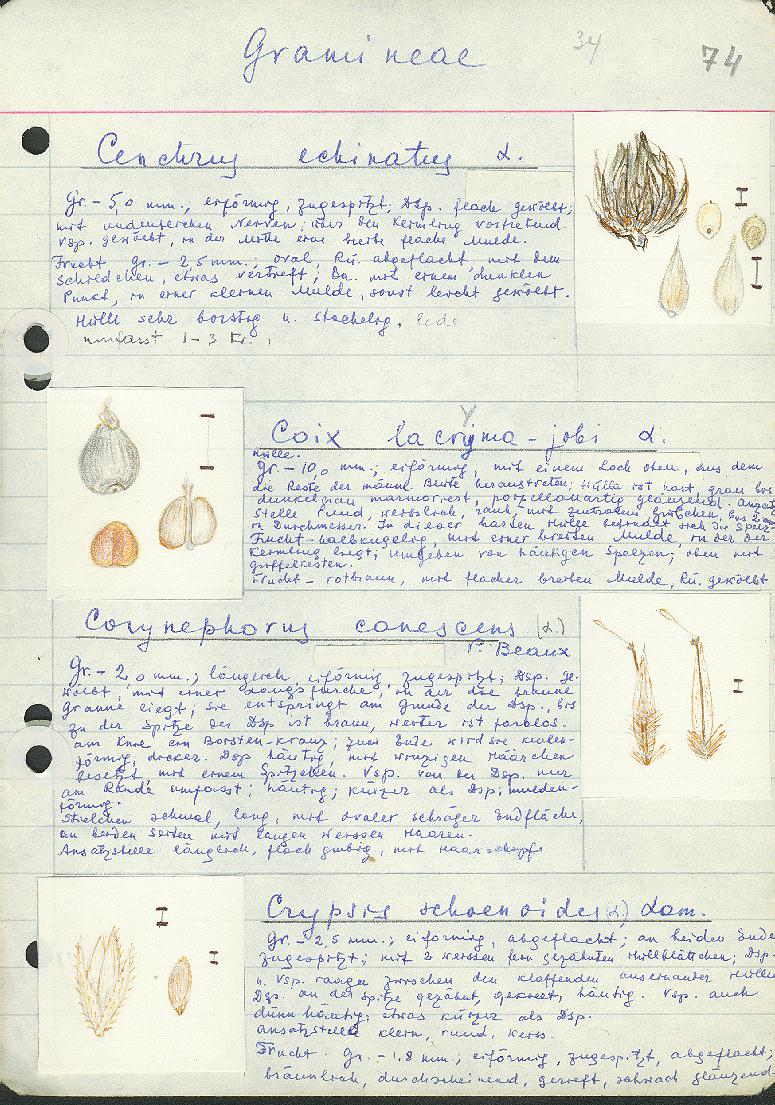 Gramineae 34 74
Cenchrus echinatus L.
Gr. - 5,0 mm.; eiförmig, zugespitzt; Dsp. flach gewölbt;
mit undeutlichen Nerven; über den Keimling vorstehend.
Vsp. gewölbt, in der Mitte eine breite flache Mulde.
Frucht Gr. - 2,5 mm.; oval; Rü. abgeflacht mit dem
Schildchen, etwas vertieft; Ba. mit einem dunklen
Punkt, in einer kleinen Mulde, sonst leicht gewölbt.
Hülle sehr borstig u. stachelig.
umfasst 1-3 Fr.
Coix lacryma-jobi L.
Hülle.
Gr. - 10,0 mm.; eiförmig, mit einem Loch oben, aus dem
die Reste der männ. Blüte heraustreten; Hülle ist hart, grau bis
dunkelgrau marmoriert, porzellanartig glänzend. Ansatz
stelle rund, weisslich, rauh, mit zentralem Grübchen, bis 2 mm
in Durchmesser. In dieser harten Hülle befindet sich die
Frucht - halbkugelig, mit einer breiten Mulde, in der der
Keimling liegt; umgeben von häutigen Spelzen; oben mit
Griffelresten.
Frucht - rotbraun, mit flacher breiten Mulde, Rü. gewölbt
Corynephorus canescens (L.)
P. Beaux
Gr. - 2,0 mm.; länglich, eiförmig zugespitzt; Dsp. ge-
wölbt, mit einer Längsfurche, in der die braune
Granne liegt; sie entspringt am Grunde der Dsp., bis
zu der Spitze des Dsp ist braun, weiter ist farblos.
am Knie ein Borsten-kranz; zum Ende wird sie keulen-
förmig, dicker. Dsp häutig, mit winzigen Häärchen
besetzt, mit einem Spitzchen. Vsp. von der Dsp. nur
am Rande umfasst; häutig; kürzer als Dsp; mulden-
förmig.
Stielchen schmal, lang, mit ovaler schräger Endfläche,
an beiden Seiten mit langen weissen Haaren.
Ansatzstelle länglich, flach grubig, mit Haarschopf
Crypsis schoenoides (L.) Lam.
Gr. - 2,5 mm.; eiförmig, abgeflacht; an beiden Ende
zugespitzt; mit 2 weissen fein gezähnten Hüllblättchen; Dsp.
u. Vsp. ragen zwischen den klaffenden auseinander Hüllen
Dsp. an der Spitze gezähnt, gekielt, häutig. Vsp. auch
dünnhäutig; etwas kürzer als Dsp.
ansatzstelle klein, rund, weiss.
Frucht. Gr. - 1,8 mm.; eiförmig, zugespitzt, abgeflacht;
bräunlich, durchscheinend, gerieft, schwach glänzend.